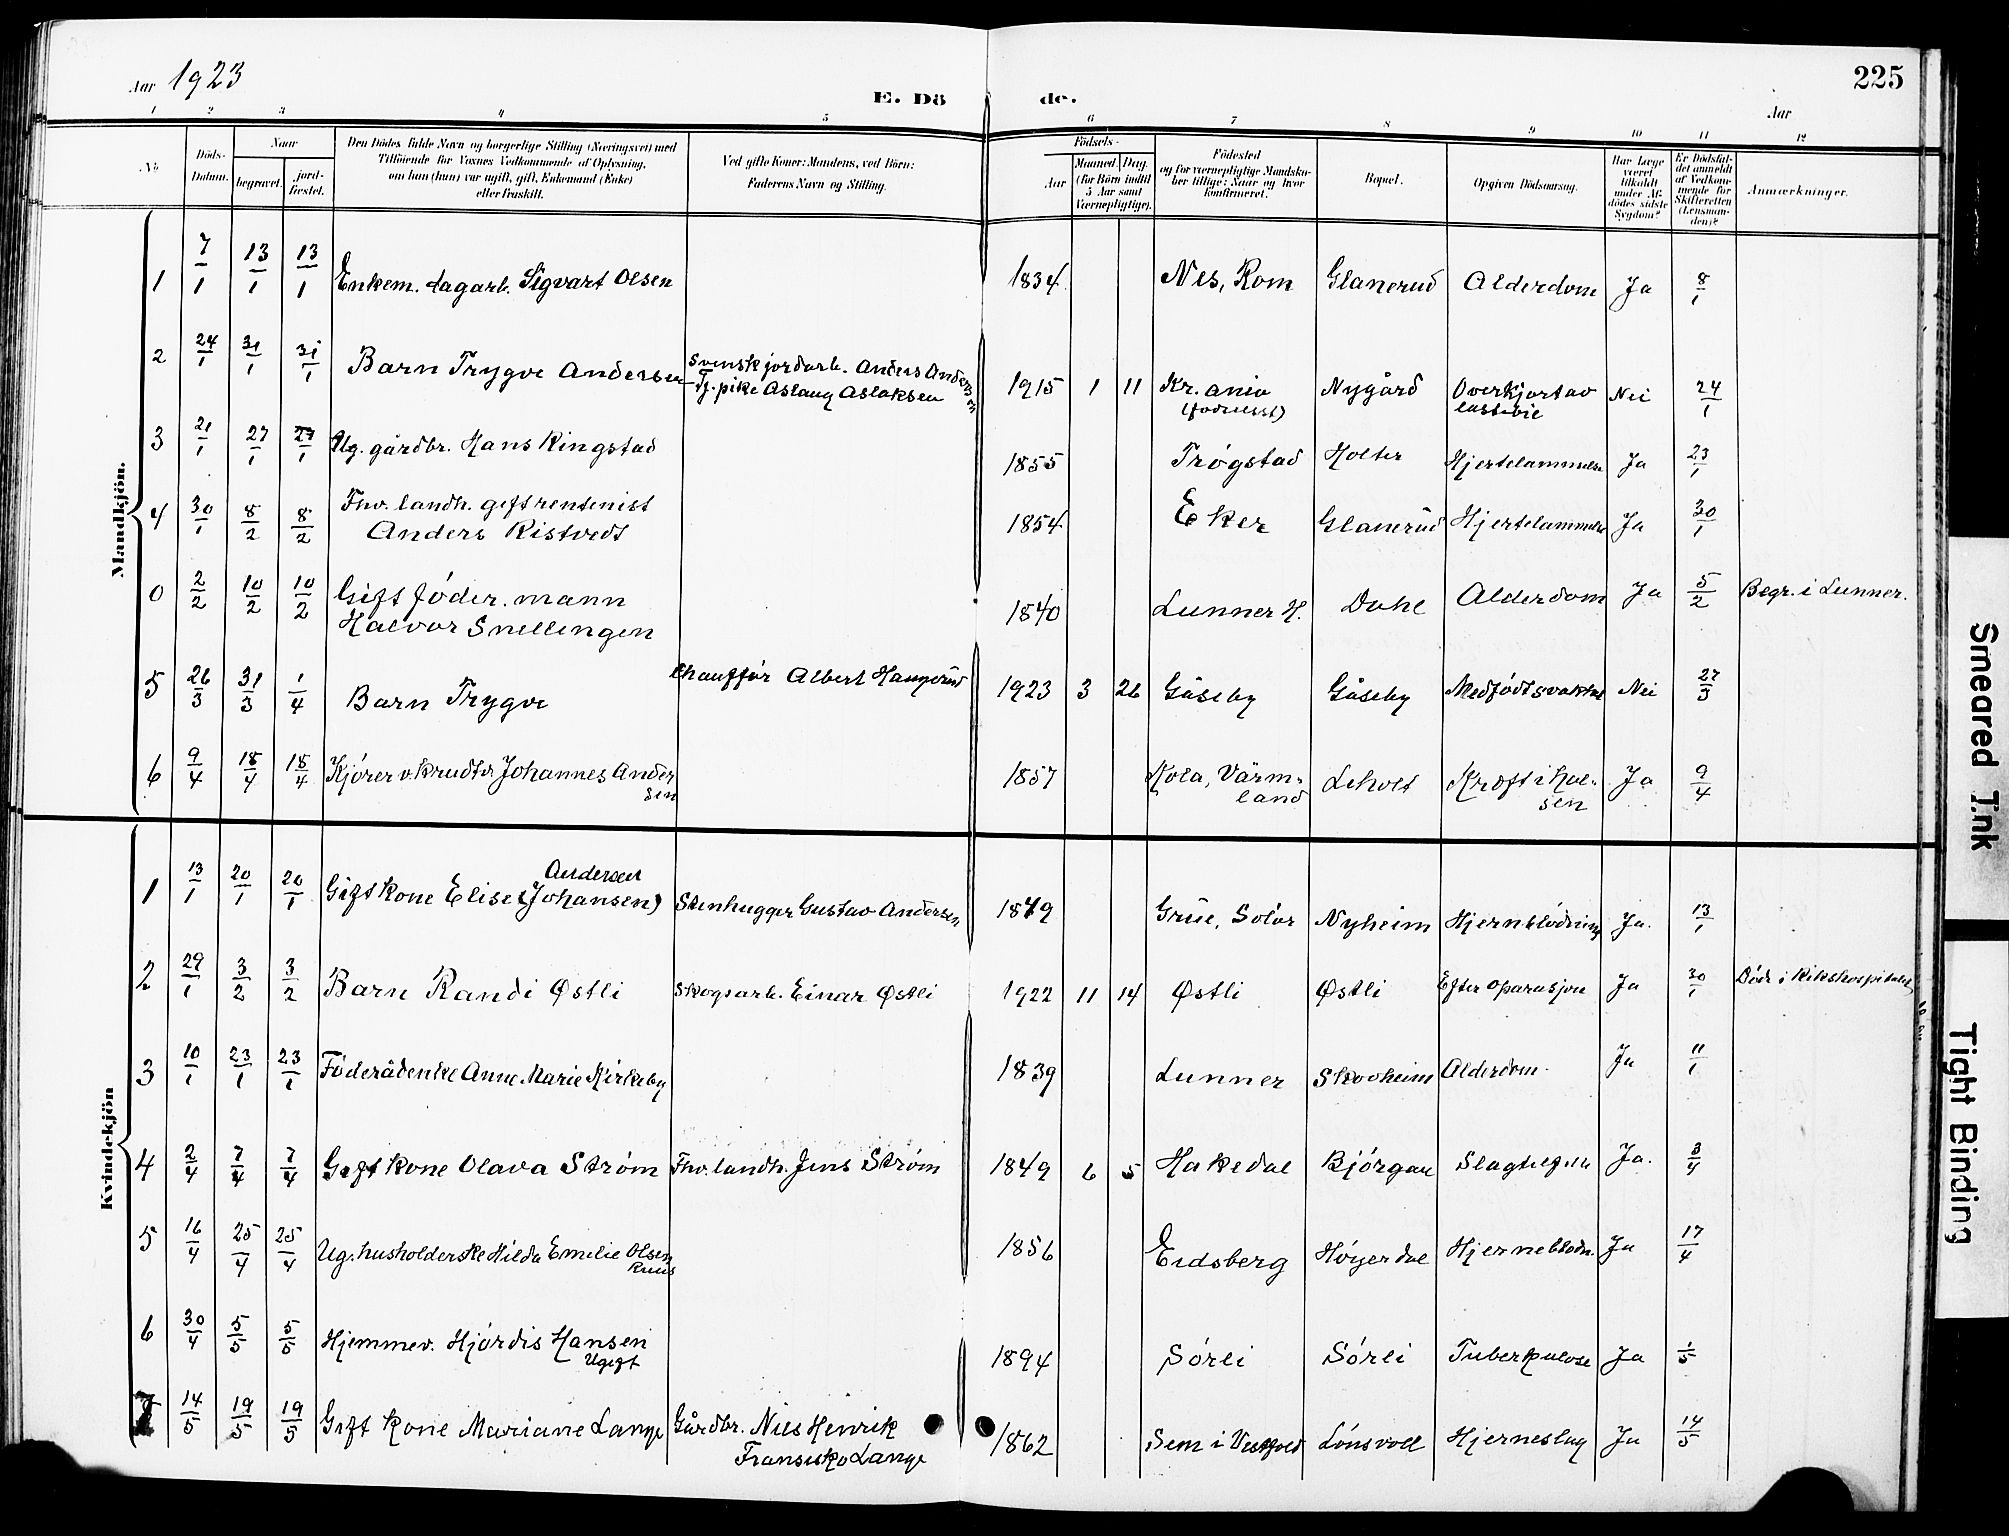 Aar 1923
E. Döde.
225
Aar
1 2 3 4 5 6 7 8 9 10 11 12
No
Döds-Datum.
Naar
begravet. jord-fæstet.
Den Dödes fulde Navn og borgerlige Stilling (Næringsvei) med
Tilföiende for Voxnes Vedkommende af Oplysning,
om han (hun) var ugift, gift, Enkemand (Enke)
eller fraskilt.
Ved gifte Koner: Mandens, ved Börn:
Faderens Navn og Stilling.
Födsels-
Aar
Maaned. Dag.
(for Börn indtil
5 Aar samt
Værnepligtige).
Födested
og for værnepligtige Mandsko-
ber tillige: Naar og hvor
konfirmeret.
Bopæl.
Opgiven Dödsaarsag.
Har Læge
været
tilkaldt
under Af-
dödes sidste
Sygdom?
Er Dödsfal-
det anmeldt
af Vedkom-
mende for
Skifteretten
(Lensman-
den)?
Anmærkninger.
Mandkjön.
1 7/1 13/1 13/1 Enkem. dagarb. Sigvart Olsen 1834 Nes, Rom Glanerud Alderdom Ja 8/1
2 24/1 31/1 31/1 Barn Trygve Andersen Svensk jordarb. Anders Andersen
Tj. pike Aslaug Aslaksen 1915 1 11 Kr.ania Nygård Overkjørt av Nei 24/1
3 21/1 27/1 27/1 Ug. gårdbr. Hans Ringstad 1855 Trøgstad Holter Hjertelammelse Ja 23/1
4 30/1 8/2 8/2 Fhv. landh. gift rentenist
Anders Ristvedt 1854 Eker Glanerud Hjertelammelse Ja 30/1
0 2/2 10/2 10/2 Gift föder.mann
Halvor Snellingen 1840 Lunner H. Dahl Alderdom Ja 5/2 Begr. i Lunner.
5 26/3 31/3 1/4 Barn Trygve Chauffør Albert Haugerud 1923 3 26 Gåseby Gåseby Medfødt svakhet Nei 27/3
6 9/4 18/4 18/4 Kjører v. krudtv. Johannes Ander
sen 1857 Kola, Värm=
land Leholt Kræft i hal-
sen Ja 9/4
Kvindekjön
1 13/1 20/1 20/1 Gift kone Elise (Johansen) Andersen Stenhugger Gustav Andersen 1849 Grue, Solør Nyheim Hjerneblødning Ja. 13/1
2 29/1 3/2 3/2 Barn Randi Østli Skogsarb. Einar Østli 1922 11 14 Østli Østli Efter oparasjon Ja 30/1 Död i Rikshospitalet
3 10/1 23/1 23/1 Føderådenke Anne Marie Kirkeby 1839 Lunner Skovheim Alderdom. Ja 11/1
4 2/4 7/4 7/4 Gift kone Olava Strøm Fhv. landh. Jens Strøm 1849 6 5 Hakedal Bjørgan Ja. 3/4
5 16/4 25/4 25/4 Ug. husholderske Hilda Emilie Olsen
Ruus 1856 Eidsberg Høgerdal Hjerneblødn. Ja 17/4
6 30/4 5/5 5/5 Hjemmev. Hjørdis Hansen
Ugift 1894 Sørli Sørli Tuberkulose Ja 1/5
7 14/5 19/5 19/5 Gift kone Mariane Lange Gårdbr. Nils Henrik
Fransisko Lange 1862 Sem i Vestfold Lønsvoll Hjerneslag Ja 14/5
Smeared Ink
Tight Binding